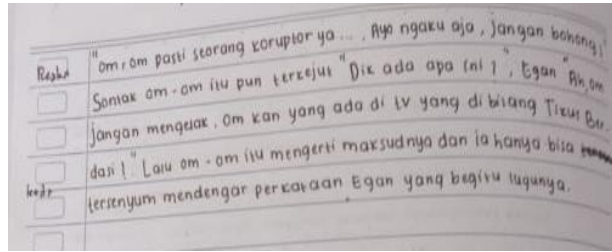 "om, om pasti seorang koruptor ya ... , Ayo ngaku aja, jangan bohong!"
Sontak om-om itu pun terkejut "Dik ada apa ini?", Egan "Ah om
jangan mengelak, om kan yang ada di tv yang di bilang Tikus Ber
dasi!" Lalu om-om itu mengerti maksudnya dan ia hanya bisa
tersenyum mendengar perkataan Egan yang begitu lugunya.